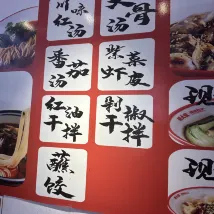 川味
红汤
骨汤
番茄汤
紫菜虾皮
红油干拌
剁椒干拌
蘸饺
现
现